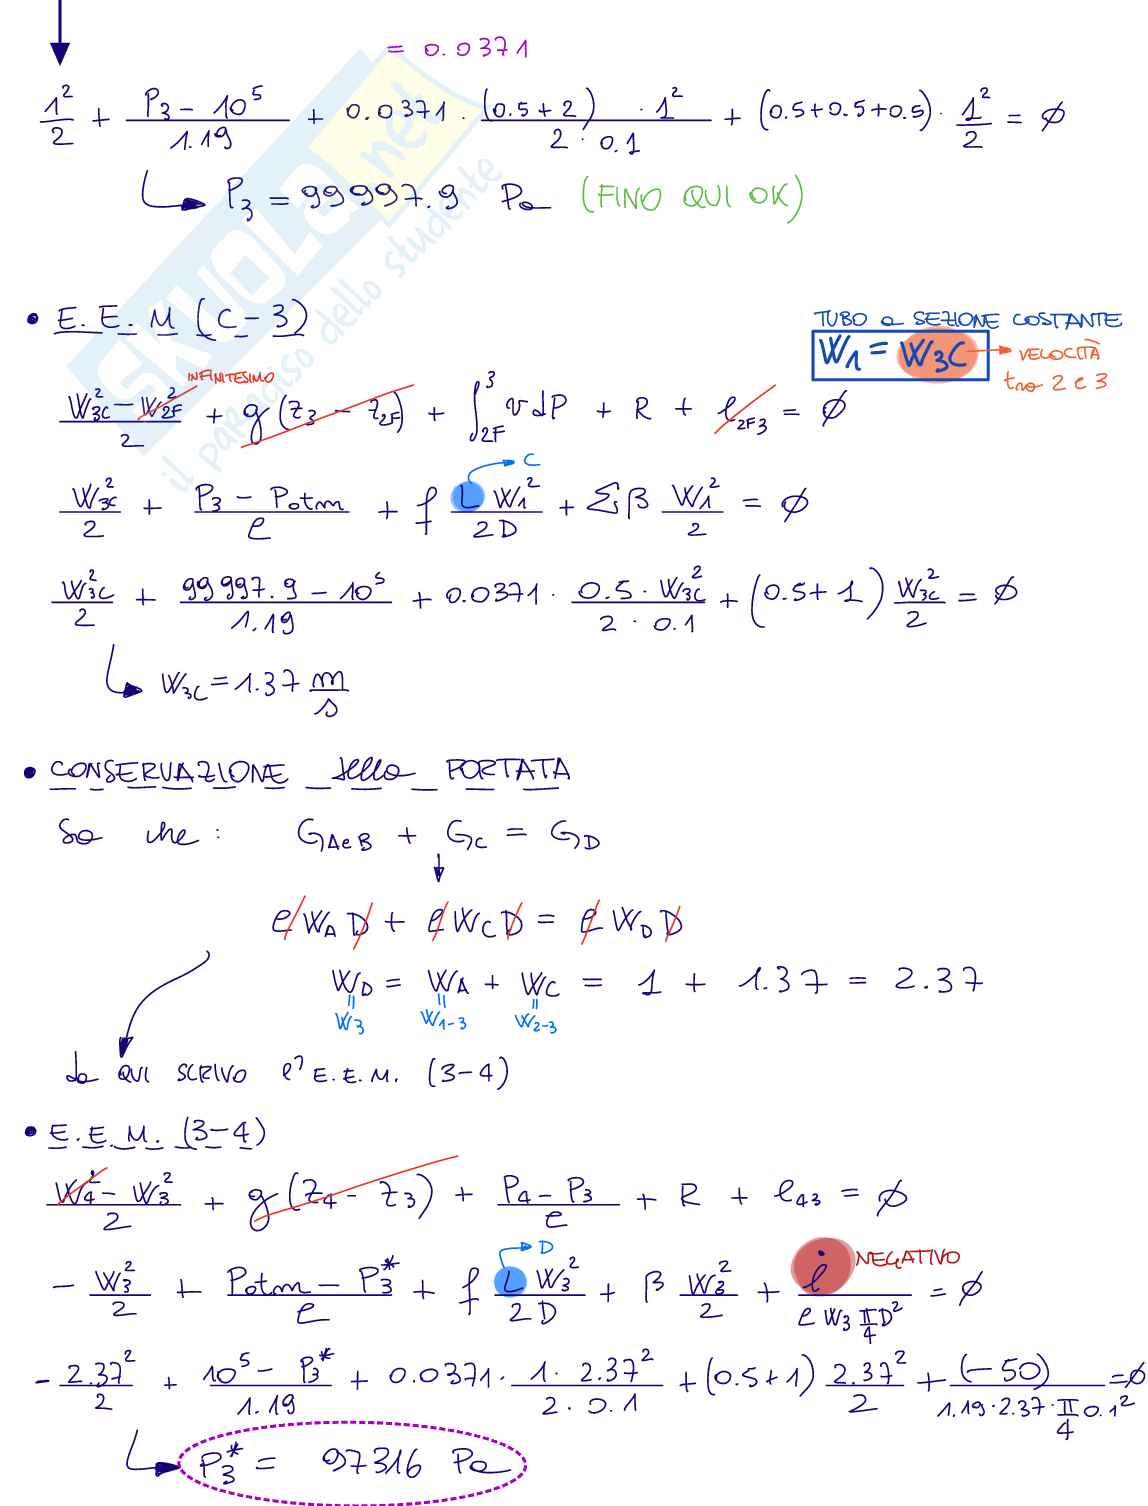 = 0.0371
1²/2 + (P₃ - 10⁵)/1.19 + 0.0371 · (0.5 + 2) · 1²/(2 · 0.1) + (0.5+0.5+0.5) · 1²/2 = ∅
P₃ = 99997.9 Pa (FINO QUI OK)
• E.E.M (C-3)
TUBO a SEZIONE COSTANTE
W₁ = W₃C → VELOCITÀ tra 2 e 3
INFINITESIMO
(W₃C² - W₂F²)/2 + g(z₃ - z₂F) + ∫₂F³ v dP + R + l₂F₃ = ∅
C
W₃C²/2 + (P₃ - Patm)/ρ + f L W₁²/2D + Σβ W₁²/2 = ∅
W₃C²/2 + (99997.9 - 10⁵)/1.19 + 0.0371 · 0.5 · W₃C²/(2 · 0.1) + (0.5 + 1) W₃C²/2 = ∅
W₃C = 1.37 m/s
• CONSERVAZIONE della PORTATA
So che: G_AeB + G_C = G_D
ρ W_A D + ρ W_C D = ρ W_D D
W_D = W_A + W_C = 1 + 1.37 = 2.37
W₃ W₁₋₃ W₂₋₃
da QUI SCRIVO l'E.E.M. (3-4)
• E.E.M. (3-4)
(W₄² - W₃²)/2 + g(z₄ - z₃) + (P₄ - P₃)/ρ + R + l₄₃ = ∅
D
NEGATIVO
- W₃²/2 + (Patm - P₃*)/ρ + f L W₃²/2D + β W₃²/2 + l̇/(ρ W₃ π/4 D²) = ∅
- 2.37²/2 + (10⁵ - P₃*)/1.19 + 0.0371 · 1 · 2.37²/(2 · 0.1) + (0.5 + 1) 2.37²/2 + (-50)/(1.19 · 2.37 · π/4 0.1²) = ∅
P₃* = 97316 Pa
SKUOLA.net
il paradiso dello studente